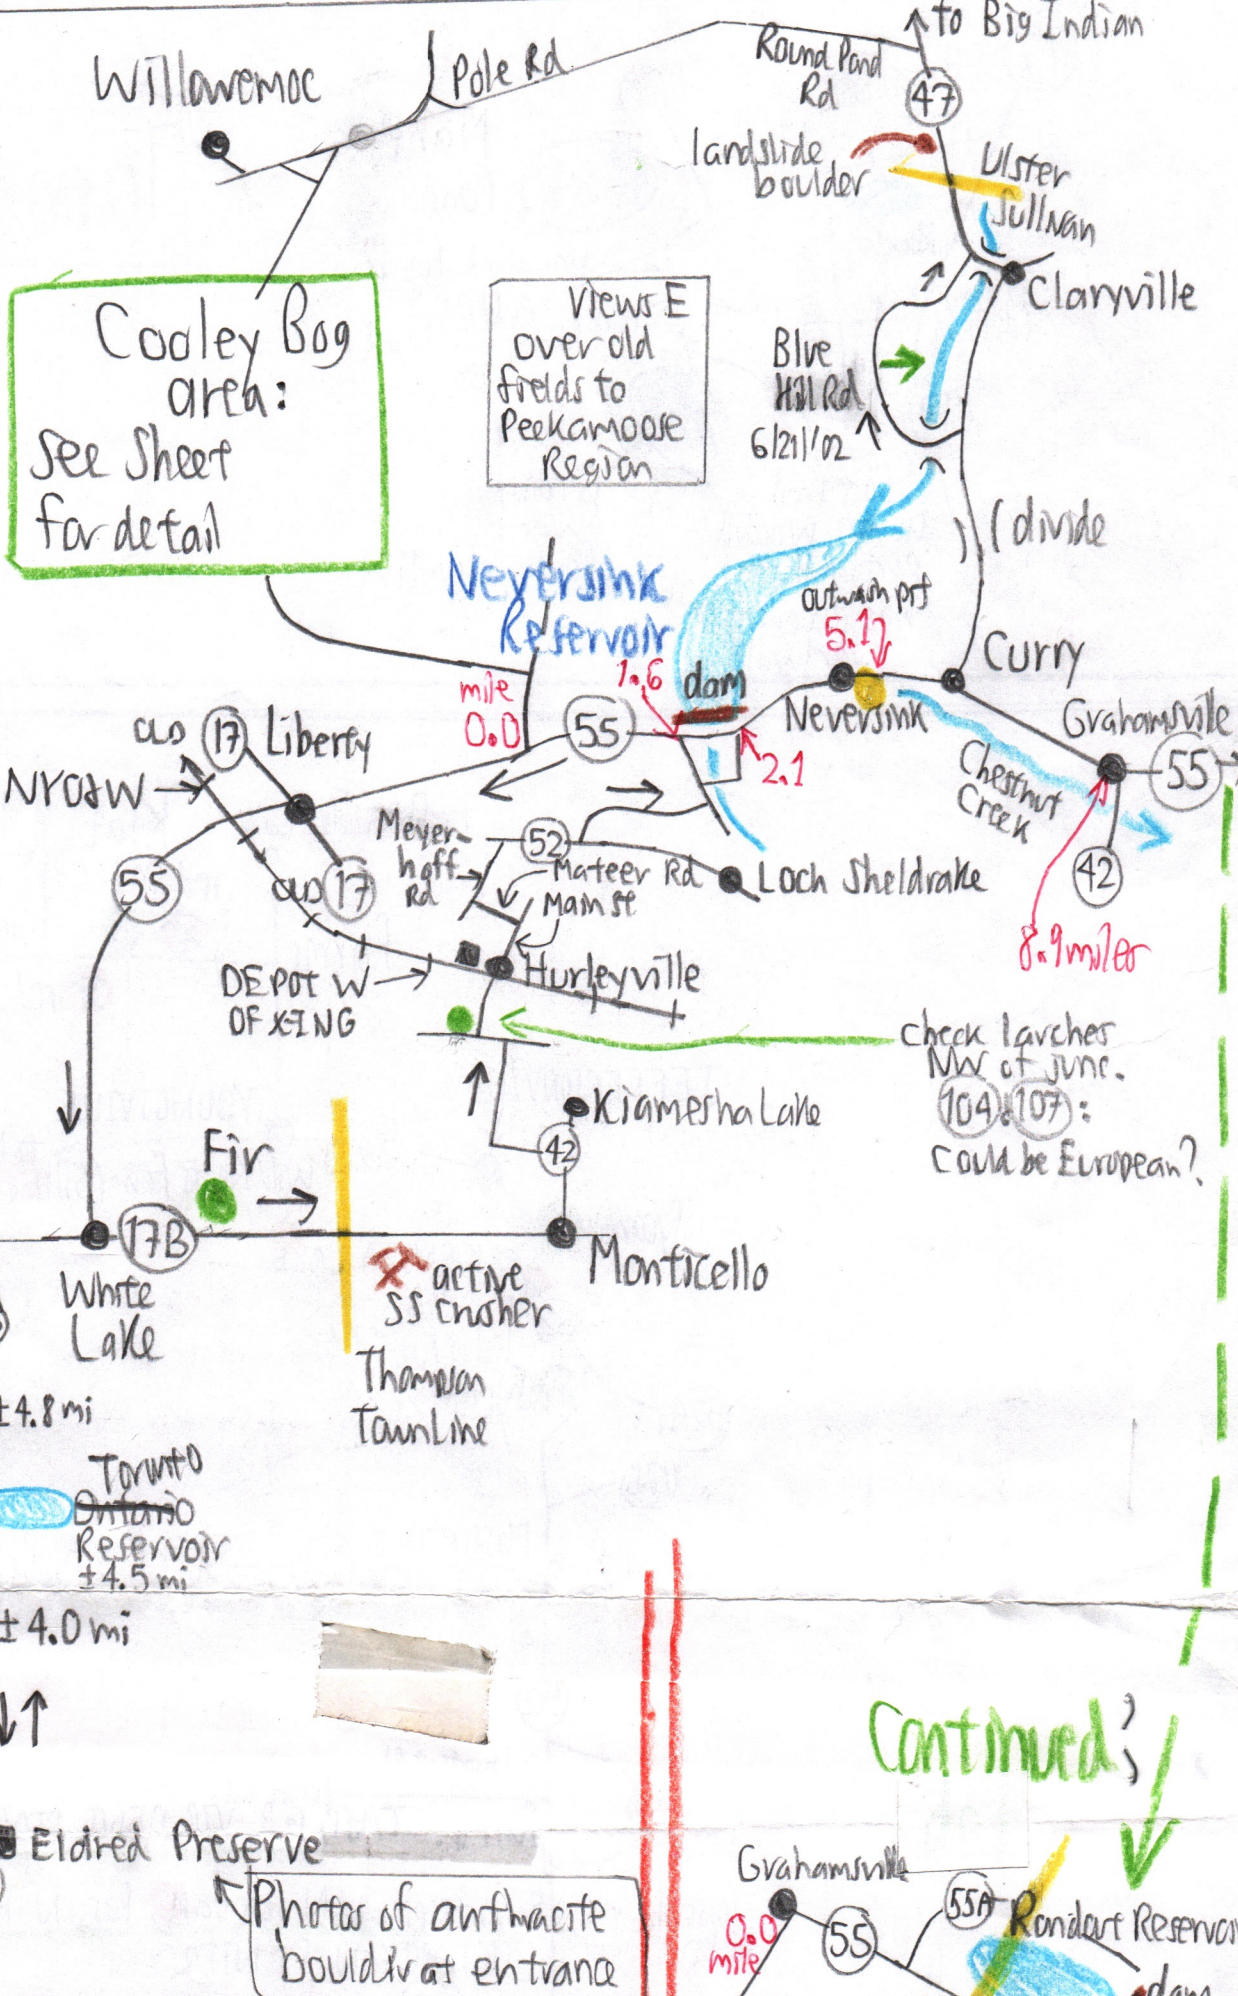 to Big Indian
Willowemoc
Pole Rd
Round Pond
Rd
47
landslide
boulder
Ulster
Sullivan
Claryville
Cooley Bog
area:
See Sheet
for detail
Views E
over old
fields to
Peekamoose
Region
Blue
Hill Rd
6/21/'02
divide
Neversink
Reservoir
outwash prf
5.1
Curry
mile
0.0
1.6
dam
Neversink
Grahamsville
OLD 17 Liberty
55
2.1
Chestnut
Creek
55
NYO&W
Meyer-
hoff
Rd
52
Mateer Rd
Main St
Loch Sheldrake
42
55
OLD 17
8.9 miles
DEPOT W
OF X-ING
Hurleyville
check larches
NW of junc.
104 : 107 :
Could be European?
Kiamesha Lake
42
Fir
17B
White
Lake
active
SS crusher
Monticello
Thompson
Town Line
±4.8 mi
Toronto
Ontario
Reservoir
±4.5 mi
±4.0 mi
Continued;
Eldred Preserve
Photos of anthracite
bouldir at entrance
Grahamsville
0.0
mile
55
55A
Rondout Reservoir
dam